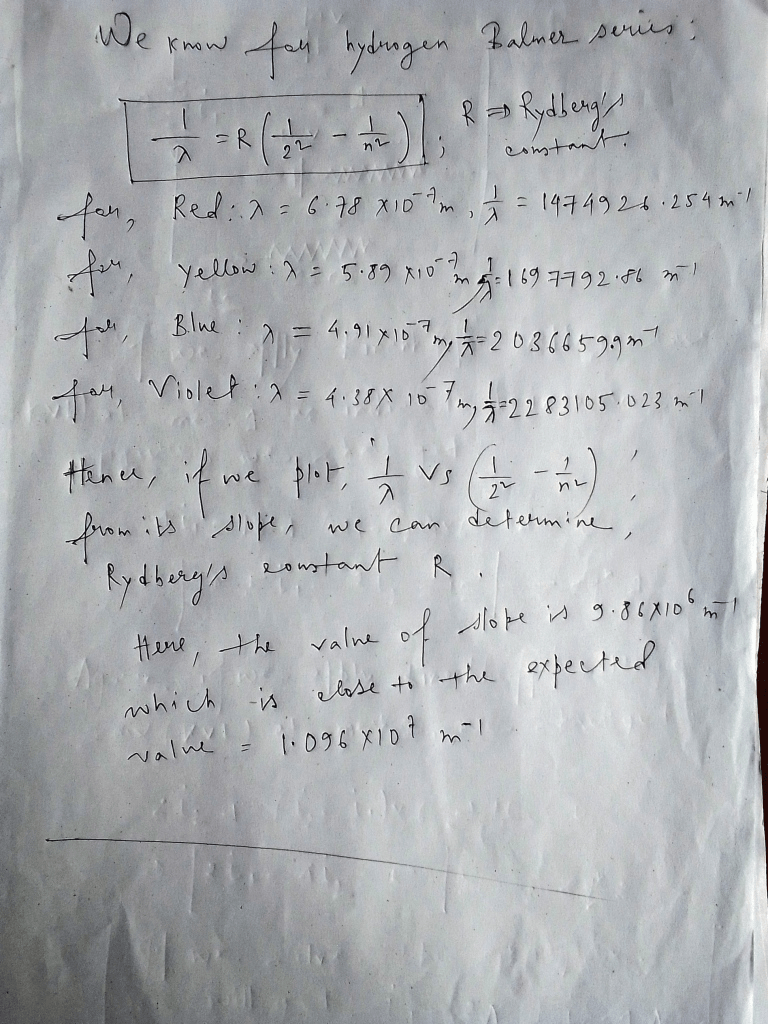 We know for hydrogen Balmer series;
1/λ = R(1/2² - 1/n²); R ⇒ Rydberg's constant.
for, Red: λ = 6.78 x10⁻⁷m, 1/λ = 1474926.254 m⁻¹
for, yellow: λ = 5.89 x10⁻⁷m, 1/λ = 1697792.86 m⁻¹
for, Blue: λ = 4.91x10⁻⁷m, 1/λ = 2036659.9m⁻¹
for, Violet: λ = 4.38x 10⁻⁷m, 1/λ = 2283105.023 m⁻¹
Hence, if we plot, 1/λ Vs (1/2² - 1/n²),
from its slope, we can determine,
Rydberg's constant R.
Here, the value of slope is 9.86x10⁶ m⁻¹
which is close to the expected
value = 1.096 x10⁷ m⁻¹